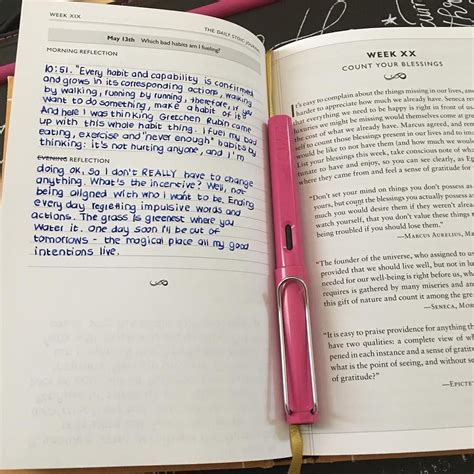 WEEK XIX
THE DAILY STOIC JOURNAL
May 13th Which bad habits am I fueling?
MORNING REFLECTION
10:51. "Every habit and capability is confirmed
and grows in its corresponding actions, walking
by walking, running by running, therefore, if you
want to do something, make a habit of it."
And here I was thinking Gretchen Rubin came
up with this whole habit thing. I fuel my bad
eating, exercise and 'never enough' habits by
thinking: it's not hurting anyone, and I'm
EVENING REFLECTION
doing ok, so I don't REALLY have to change
anything. What's the incentive? Well, not
being aligned with who I want to be. Ending
every day regretting impulsive words and
actions. The grass is greenest where you
water it. One day soon I'll be out of
tomorrows - the magical place all my good
intentions live.
WEEK XX
COUNT YOUR BLESSINGS
It's easy to complain about the things missing in our lives, and
harder to appreciate how much we already have. Seneca
be perfectly happy without things
luxuries we might be missing would come
the cost of what we already have. Marcus agreed, and
self to count those blessings present in our lives and to
would be like to not have them (and how much we would
List your blessings this week, take conscious note of
tunate to have and enjoy, so you can see clearly, as
where they came from and feel a sense of gratitude
"Don't set your mind on things you don't possess as
yours, but count the blessings you actually possess
much you would desire them if they weren't already
watch yourself, that you don't value these things
being troubled if you should lose them."
—MARCUS AURELIUS,
"The founder of the universe, who assigned to us
provided that we should live well, but not in
needed for our well-being is right before us, while
requires are gathered by many miseries and
this gift of nature and count it among the
—SENECA, MOR
"It is easy to praise providence for anything
have two qualities: a complete view of
pened in each instance and a sense of
is the point of seeing, and without
of gratitude?"
—EPICTE